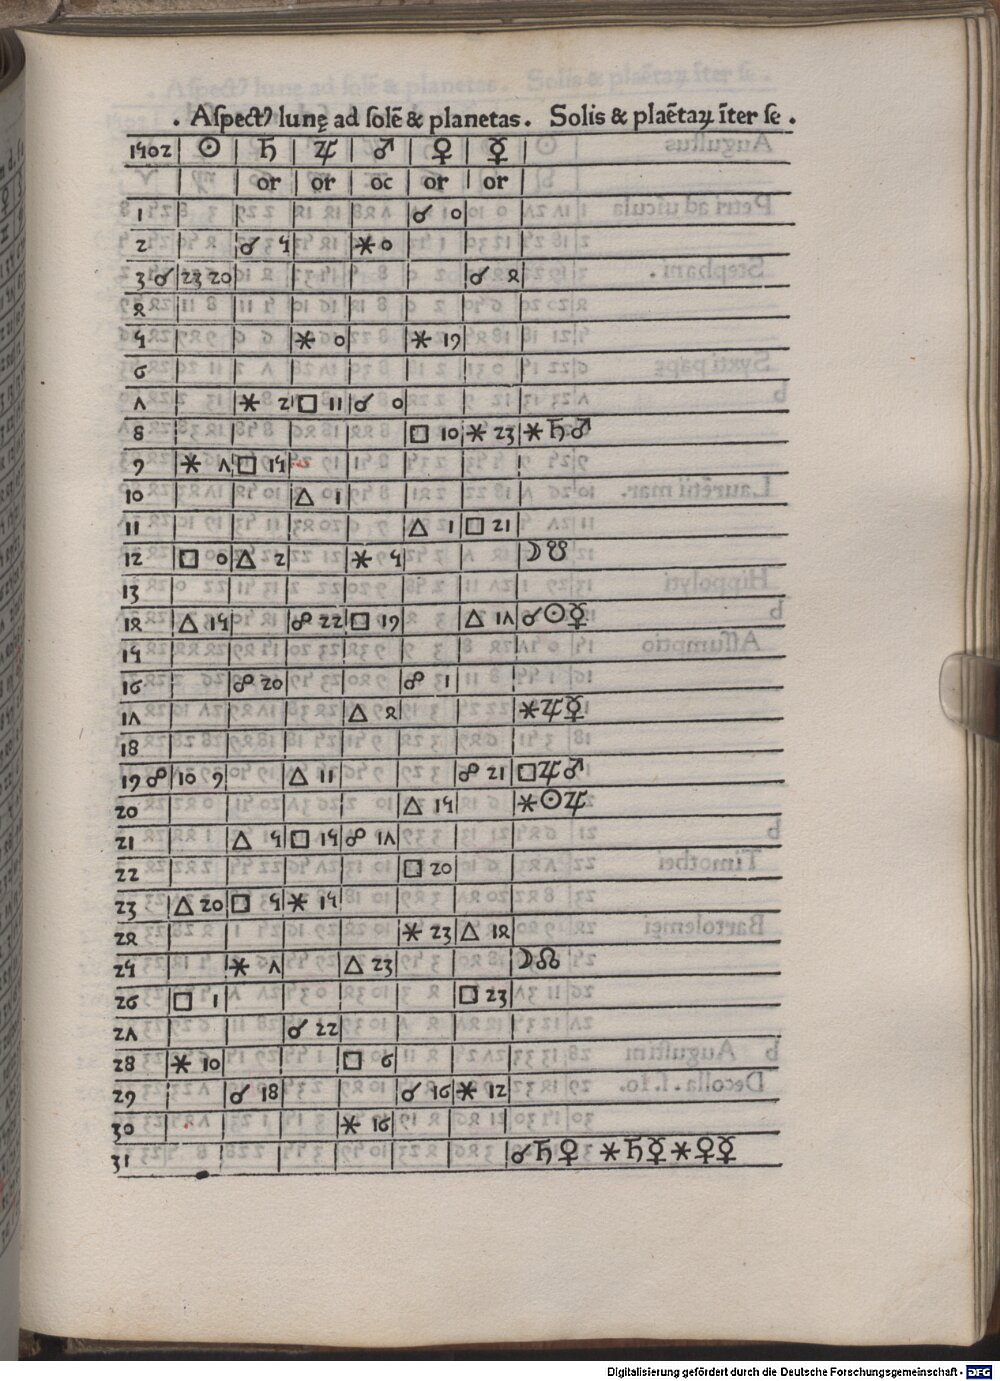 . Aſpectꝰ lunę ad ſolē & planetas . Solis & plaētaꝝ īter ſe .
1502 ☉ ♄ ♃ ♂ ♀ ☿
or or oc or or
1 ☌ 0
2 ☌ 5 ⚹ 0
3 ☌ 23 20 ☌ 4
4
5 ⚹ 0 ⚹ 19
6
7 ⚹ 2 □ 11 ☌ 0
8 □ 10 ⚹ 23 ⚹ ♄ ♂
9 ⚹ 7 □ 15
10 △ 1
11 △ 1 □ 21
12 □ 0 △ 2 ⚹ 5 ☽ ☋
13
14 △ 15 ☍ 22 □ 19 △ 17 ☌ ☉ ☿
15
16 ☍ 20 ☍ 1
17 △ 4 ⚹ ♃ ☿
18
19 ☍ 10 9 △ 11 ☍ 21 □ ♃ ♂
20 △ 15 ⚹ ☉ ♃
21 △ 5 □ 15 ☍ 17
22 □ 20
23 △ 20 □ 5 ⚹ 15
24 ⚹ 23 △ 14
25 ⚹ 7 △ 23 ☽ ☊
26 □ 1 □ 23
27 ☌ 22
28 ⚹ 10 □ 6
29 ☌ 18 ☌ 16 ⚹ 12
30 ⚹ 16
31 ☌ ♄ ♀ ⚹ ♄ ☿ ⚹ ♀ ☿
Digitalisierung gefördert durch die Deutsche Forschungsgemeinschaft - DFG